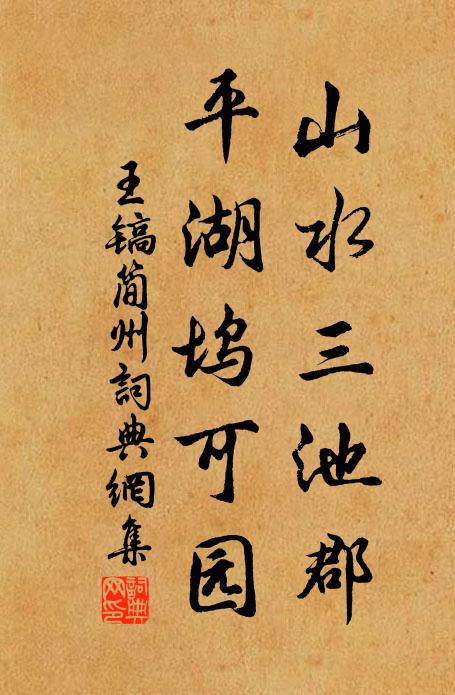 山水三池郡
平湖坞可园
王镐简州詞典網集
詞典网印